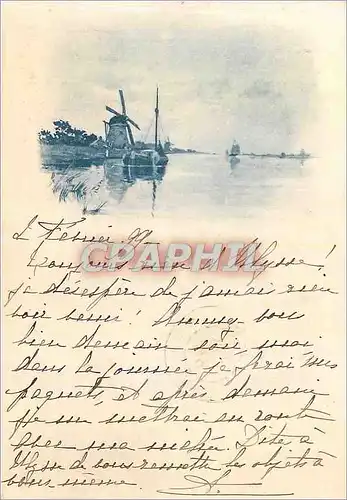 2 Février 99
Toujours rien d'Ulysse!
je désespère de jamais rien
voir venir! Amusez-vous
bien demain soir, moi
dans la journée je ferai mes
paquets et après demain
je me mettrai en route
avec ma nichée. Dites à
de vous remettre les objets à
vous même. A.
CPARHIL